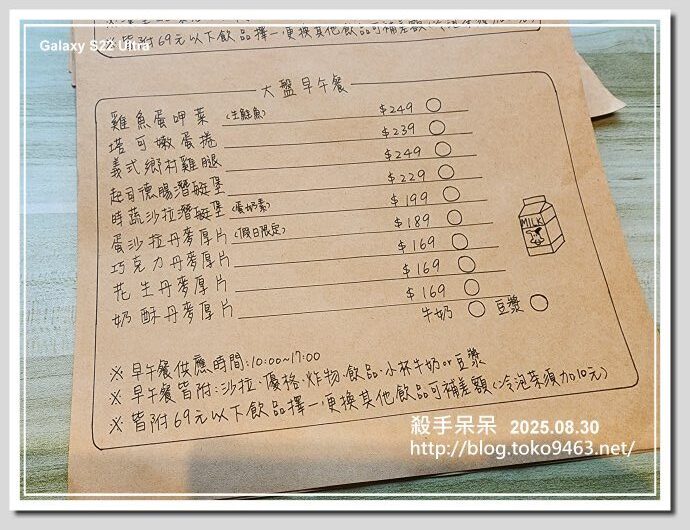 ※皆附69元以下飲品擇一,更換其他飲品可補差額(冷泡茶須加10元)
Galaxy S22 Ultra
大盤早午餐
雞魚蛋呷菜(生鮭魚) $249
塔可嫩蛋捲 $239
義式鄉村雞腿 $249
起司德腸潛艇堡 $229
時蔬沙拉潛艇堡(蛋奶素) $199
蛋沙拉丹麥厚片(假日限定) $189
巧克力丹麥厚片 $169
花生丹麥厚片 $169
奶酥丹麥厚片 $169
MILK
牛奶 豆漿
※早午餐供應時間:10:00~17:00
※早午餐皆附:沙拉、優格、炸物、飲品、小杯牛奶or豆漿
※皆附69元以下飲品擇一,更換其他飲品可補差額(冷泡茶須加10元)
殺手呆呆 2025.08.30
http://blog.toko9463.net/